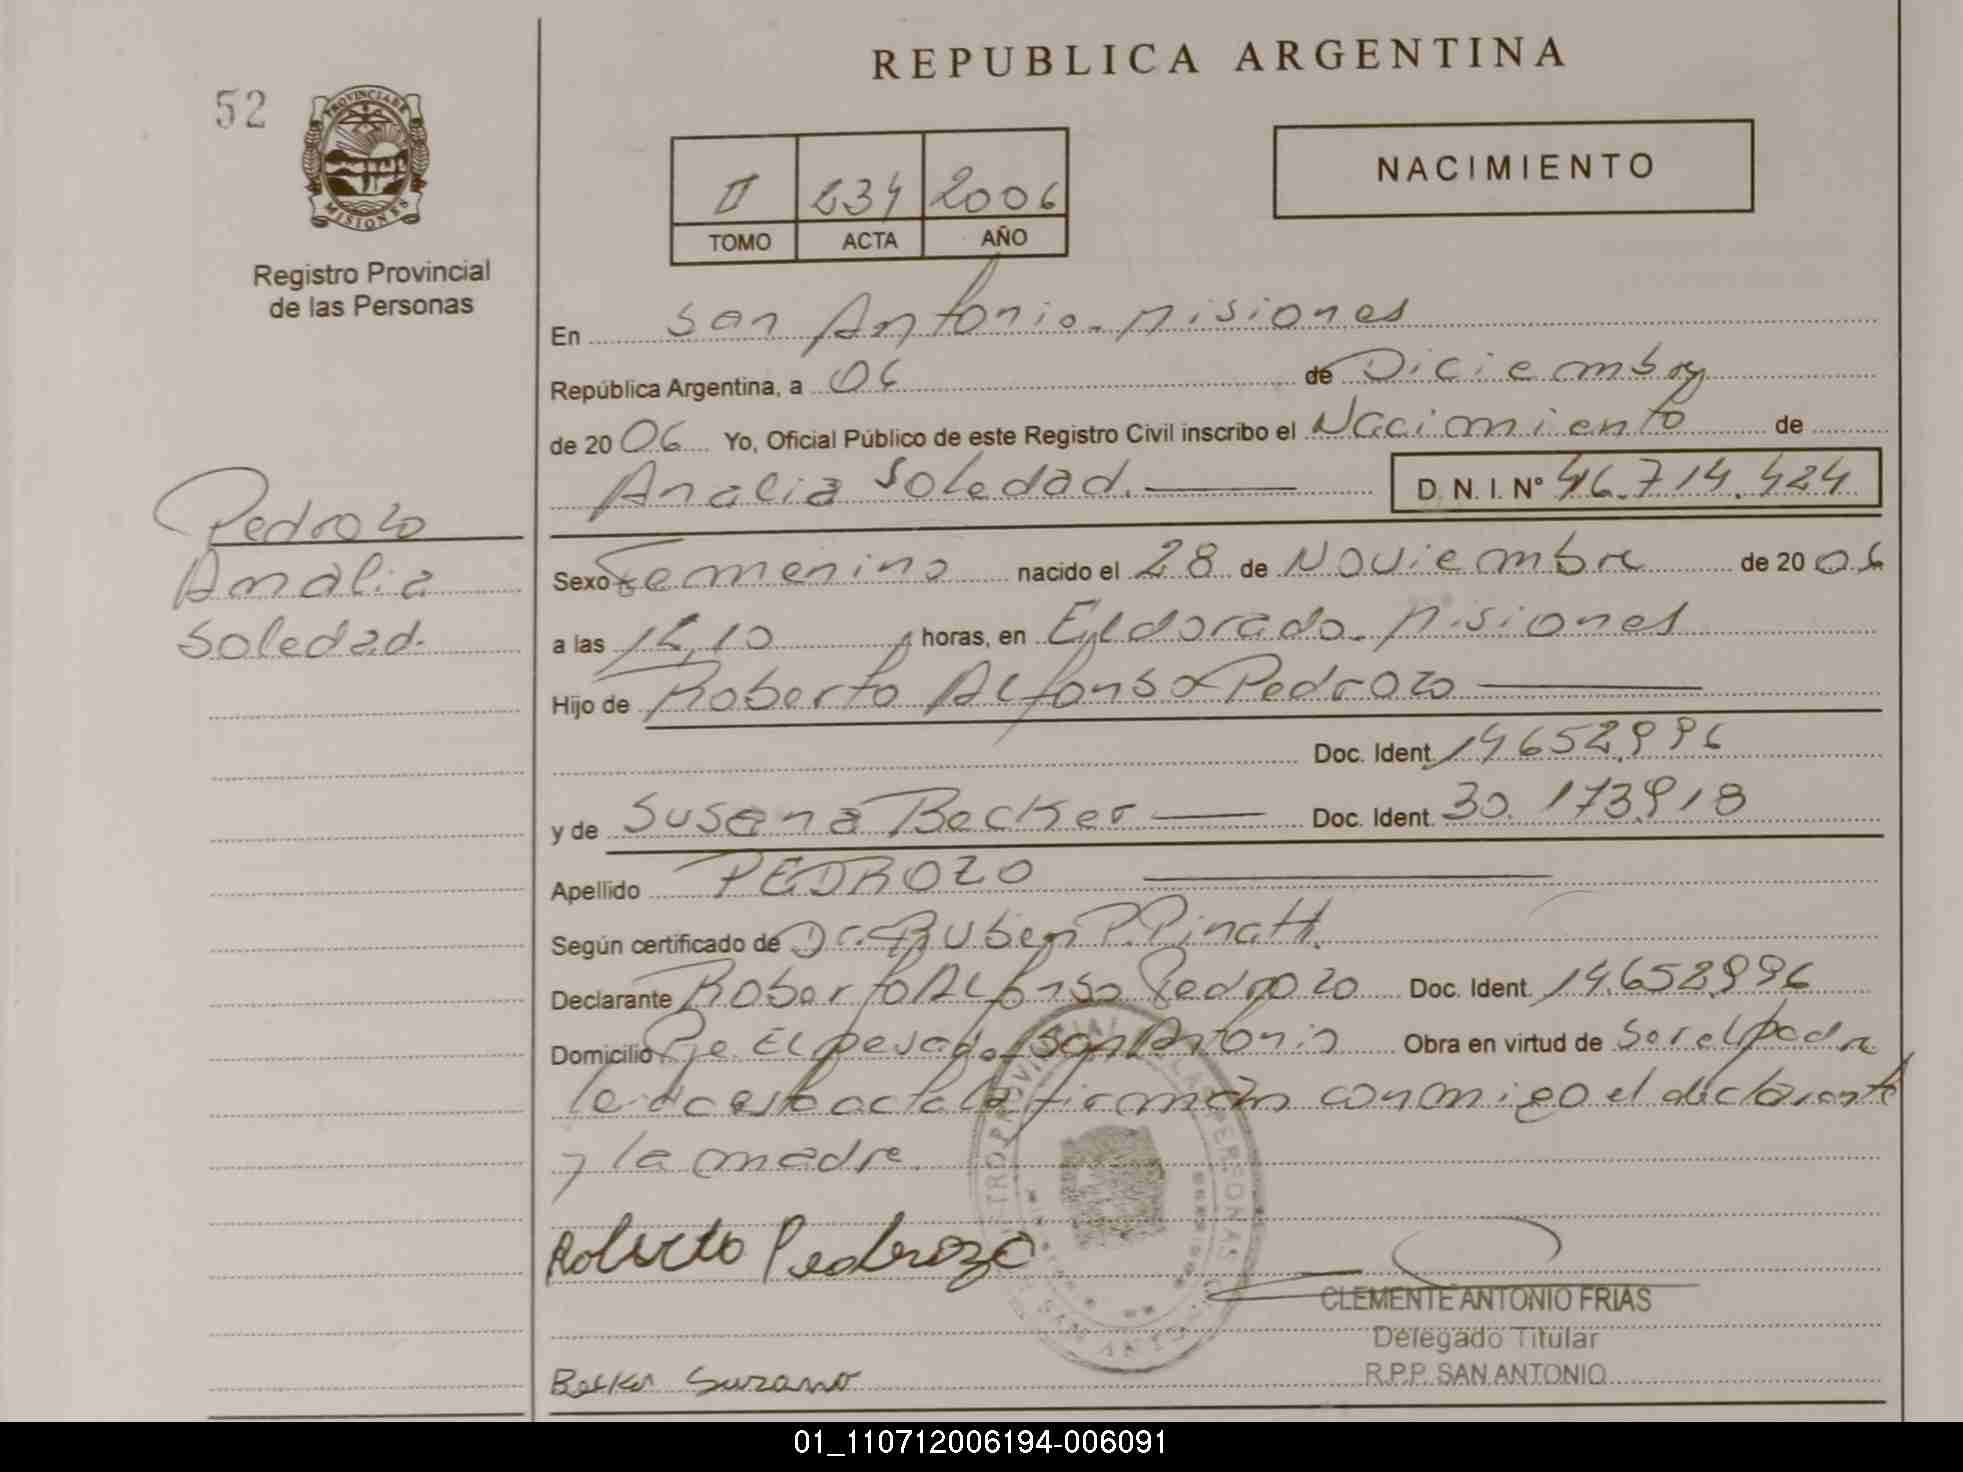 REPUBLICA ARGENTINA
52
PROVINCIA DE
MISIONES
Registro Provincial
de las Personas
NACIMIENTO
II 234 2006
TOMO ACTA AÑO
En San Antonio - Misiones
República Argentina, a 06 de Diciembre
de 2006 Yo, Oficial Público de este Registro Civil inscribo el Nacimiento de
Analia Soledad. D. N. I. Nº 46.714.424
Pedrozo
Analia
Soledad.
Sexo Femenino nacido el 28 de Noviembre de 2006
a las horas, en Eldorado - Misiones
Hijo de Roberto Alfonso Pedrozo
Doc. Ident. 14.652.996
y de Susana Becker Doc. Ident. 30.173.918
Apellido PEDROZO
Según certificado de Dr. Ruben P. Pinatti.
Declarante Roberto Alfonso Pedrozo Doc. Ident. 14.652.996
Domicilio Pje. El pesado - San Antonio Obra en virtud de Ser el padre
leida esta acta la firman conmigo el declarante
y la madre.
Roberto Pedrozo
CLEMENTE ANTONIO FRIAS
Delegado Titular
R.P.P. SAN ANTONIO
Becker Susana
01_110712006194-006091